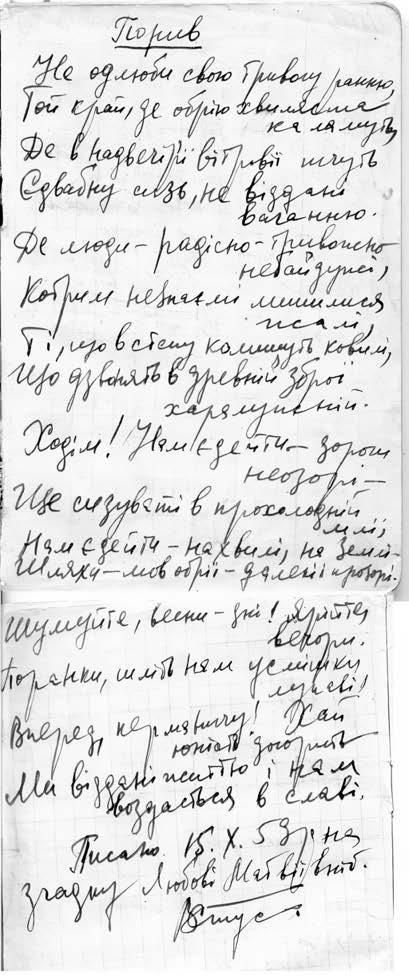 Порив
Не одлюби свою тривогу ранню,
Той край, де обрію хвиляста
каламуть,
Де в надвечір'ї вітровії тчуть
Єдвабну сизь, не віддані
ваганню.
Де люди – радісно-тривожно
небайдужі,
Котрим незнаємі лишилися
жалі,
Ті, що в степу колишуть ковилі,
Що дзвонять в древній зброї
харалужній.
Ходім! Нам є де йти – дороги
неозорі –
Ще сизуваті в прохолодній
млі,
Нам є де йти – на хвилі, на землі –
Шляхи – мов обрії – далекі і прозорі.
Шумуйте, весни – дні! Ярійте,
вечори.
Поранки, шліть нам усмішки
лукаві!
Вперед, керманичу! Хай
юність догорить
Ми віддані життю і нам
воздасться в славі.
Писано 15.X.59р на
згадку Любові Матвіївній.
ВСтус